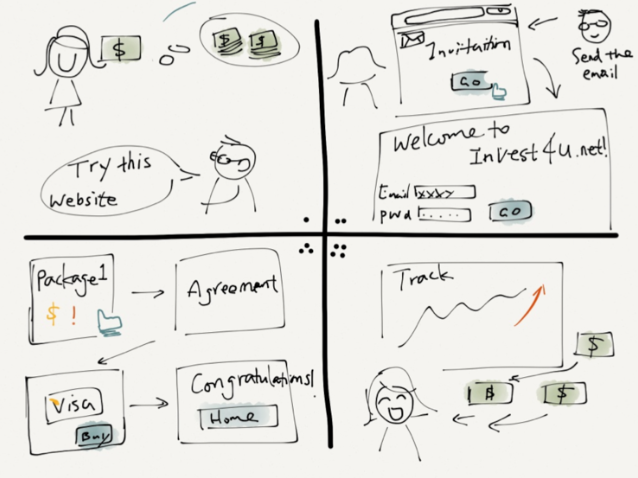 $
$ $
Try this
website
Invitation
GO
Send the
email
Welcome to
Invest4u.net!
Email xxxy
Pwd .....
GO
Package1
$ !
Agreement
Visa
Buy
Congratulations!
Home
Track
$
$
$